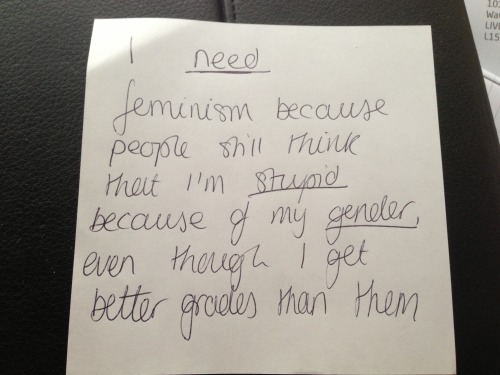 I need
feminism because
people still think
that I'm stupid
because of my gender,
even though I get
better grades than them